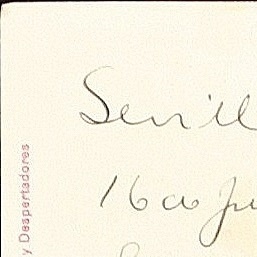 Sevill
16 a Ju
y Despertadores